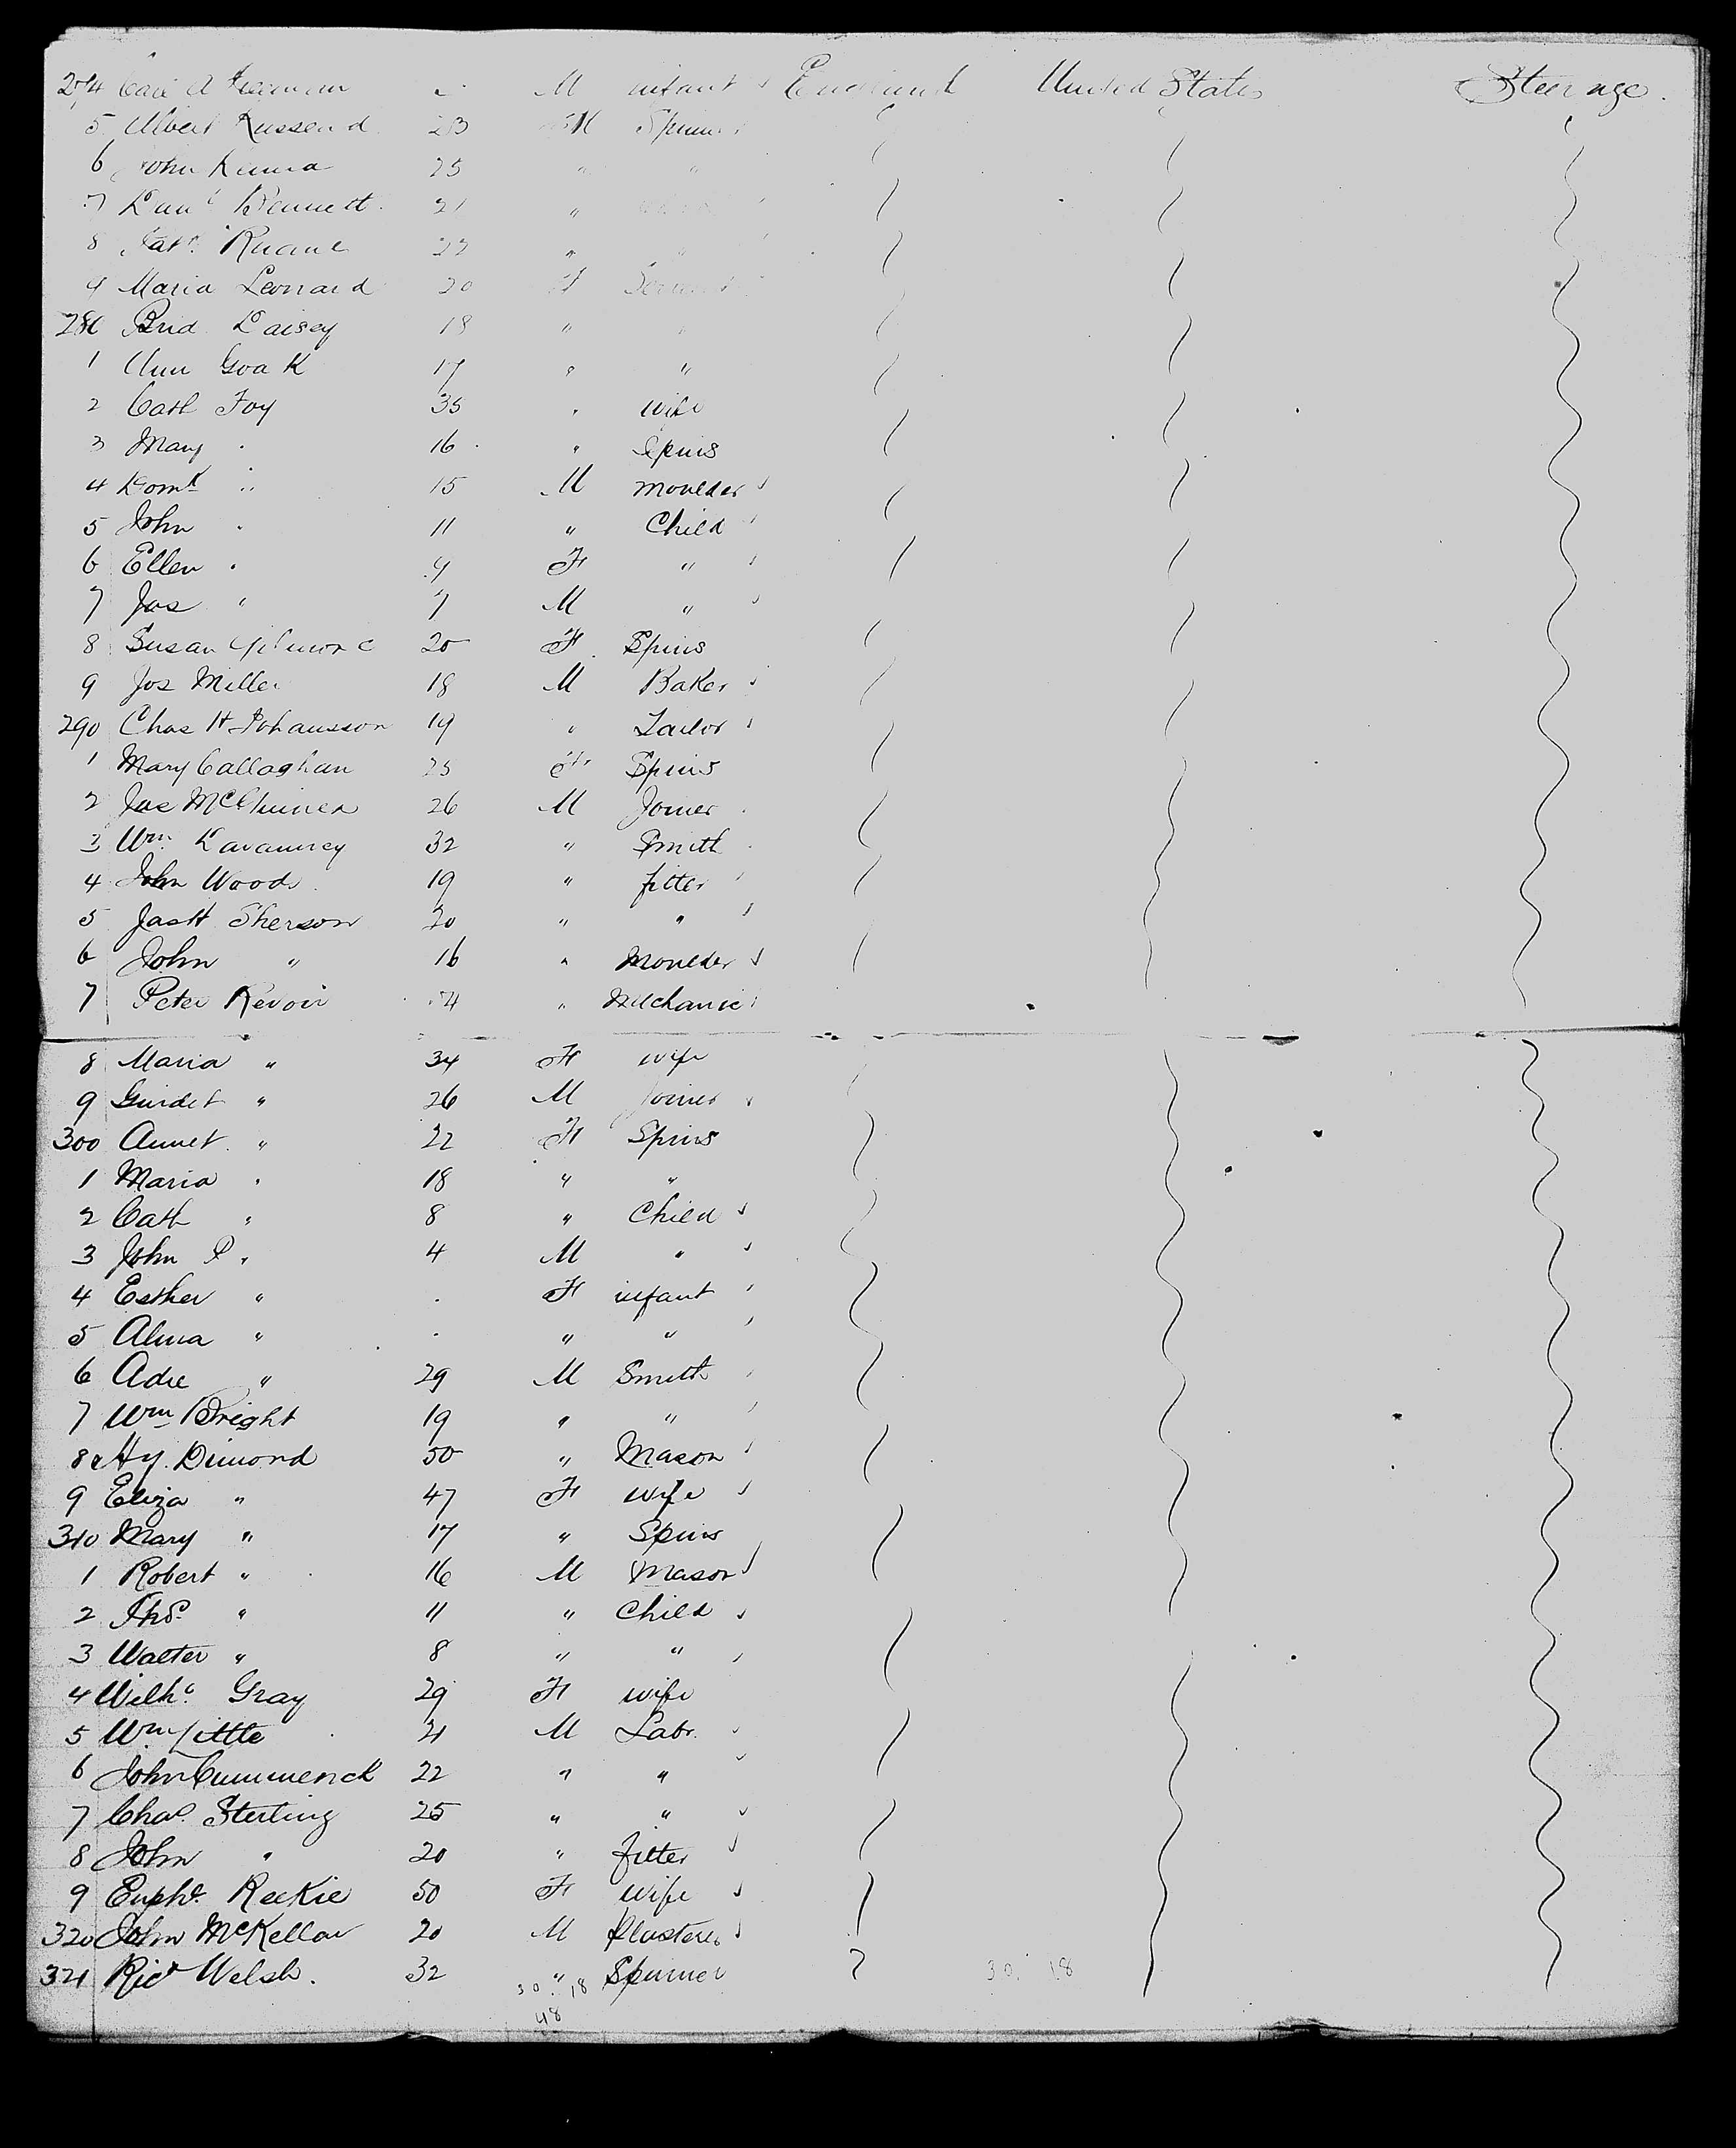 274 Carl A M infant England United States Steerage.
5 Albert 23 M
6 John 25 "
7 Danl Bennett. 21 "
8 Patk Ruane 22 "
9 Maria Leonard 20 F Servant
280 Brid Daisey 18 " "
1 Ann Goak 17 " "
2 Cath Foy 35 " wife
3 Mary " 16 " Spins
4 Domk " 15 M Moulder
5 John " 11 " Child
6 Ellen " 9 F "
7 Jas " 7 M "
8 Susan Gilmore 20 F Spins
9 Jos Miller 18 M Baker
290 Chas H Johansson 19 " Tailor
1 Mary Callaghan 25 F Spins
2 Jas 26 M Joiner
3 Wm 32 " Smith
4 John Woods 19 " fitter
5 Jas H Sherson 20 " "
6 John " 16 " Moulder
7 Peter Revoir " Mechanic
8 Maria " 34 F wife
9 " 26 M Joiner
300 Annet " 22 F Spins
1 Maria " 18 " "
2 Cath " 8 " Child
3 John P " 4 M "
4 Esther " F infant
5 Alma " " "
6 Adie " 29 M Smith
7 Wm Bright 19 " "
8 Hy. Dimond 50 " Mason
9 Eliza " 47 F wife
310 Mary " 17 " Spins
1 Robert " 16 M Mason
2 Thos " 11 " Child
3 Walter " 8 " "
4 Wilha Gray 29 F wife
5 Wm Little 21 M Labr.
6 John Cummerick 22 " "
7 Chas. Sterling 25 " "
8 John " 20 " fitter
9 Upha. Reekie 50 F Wife
320 John McKellar 20 M Plasterer
321 Ricd Welsh. 32 " Spinner
30. 18 30. 18
48